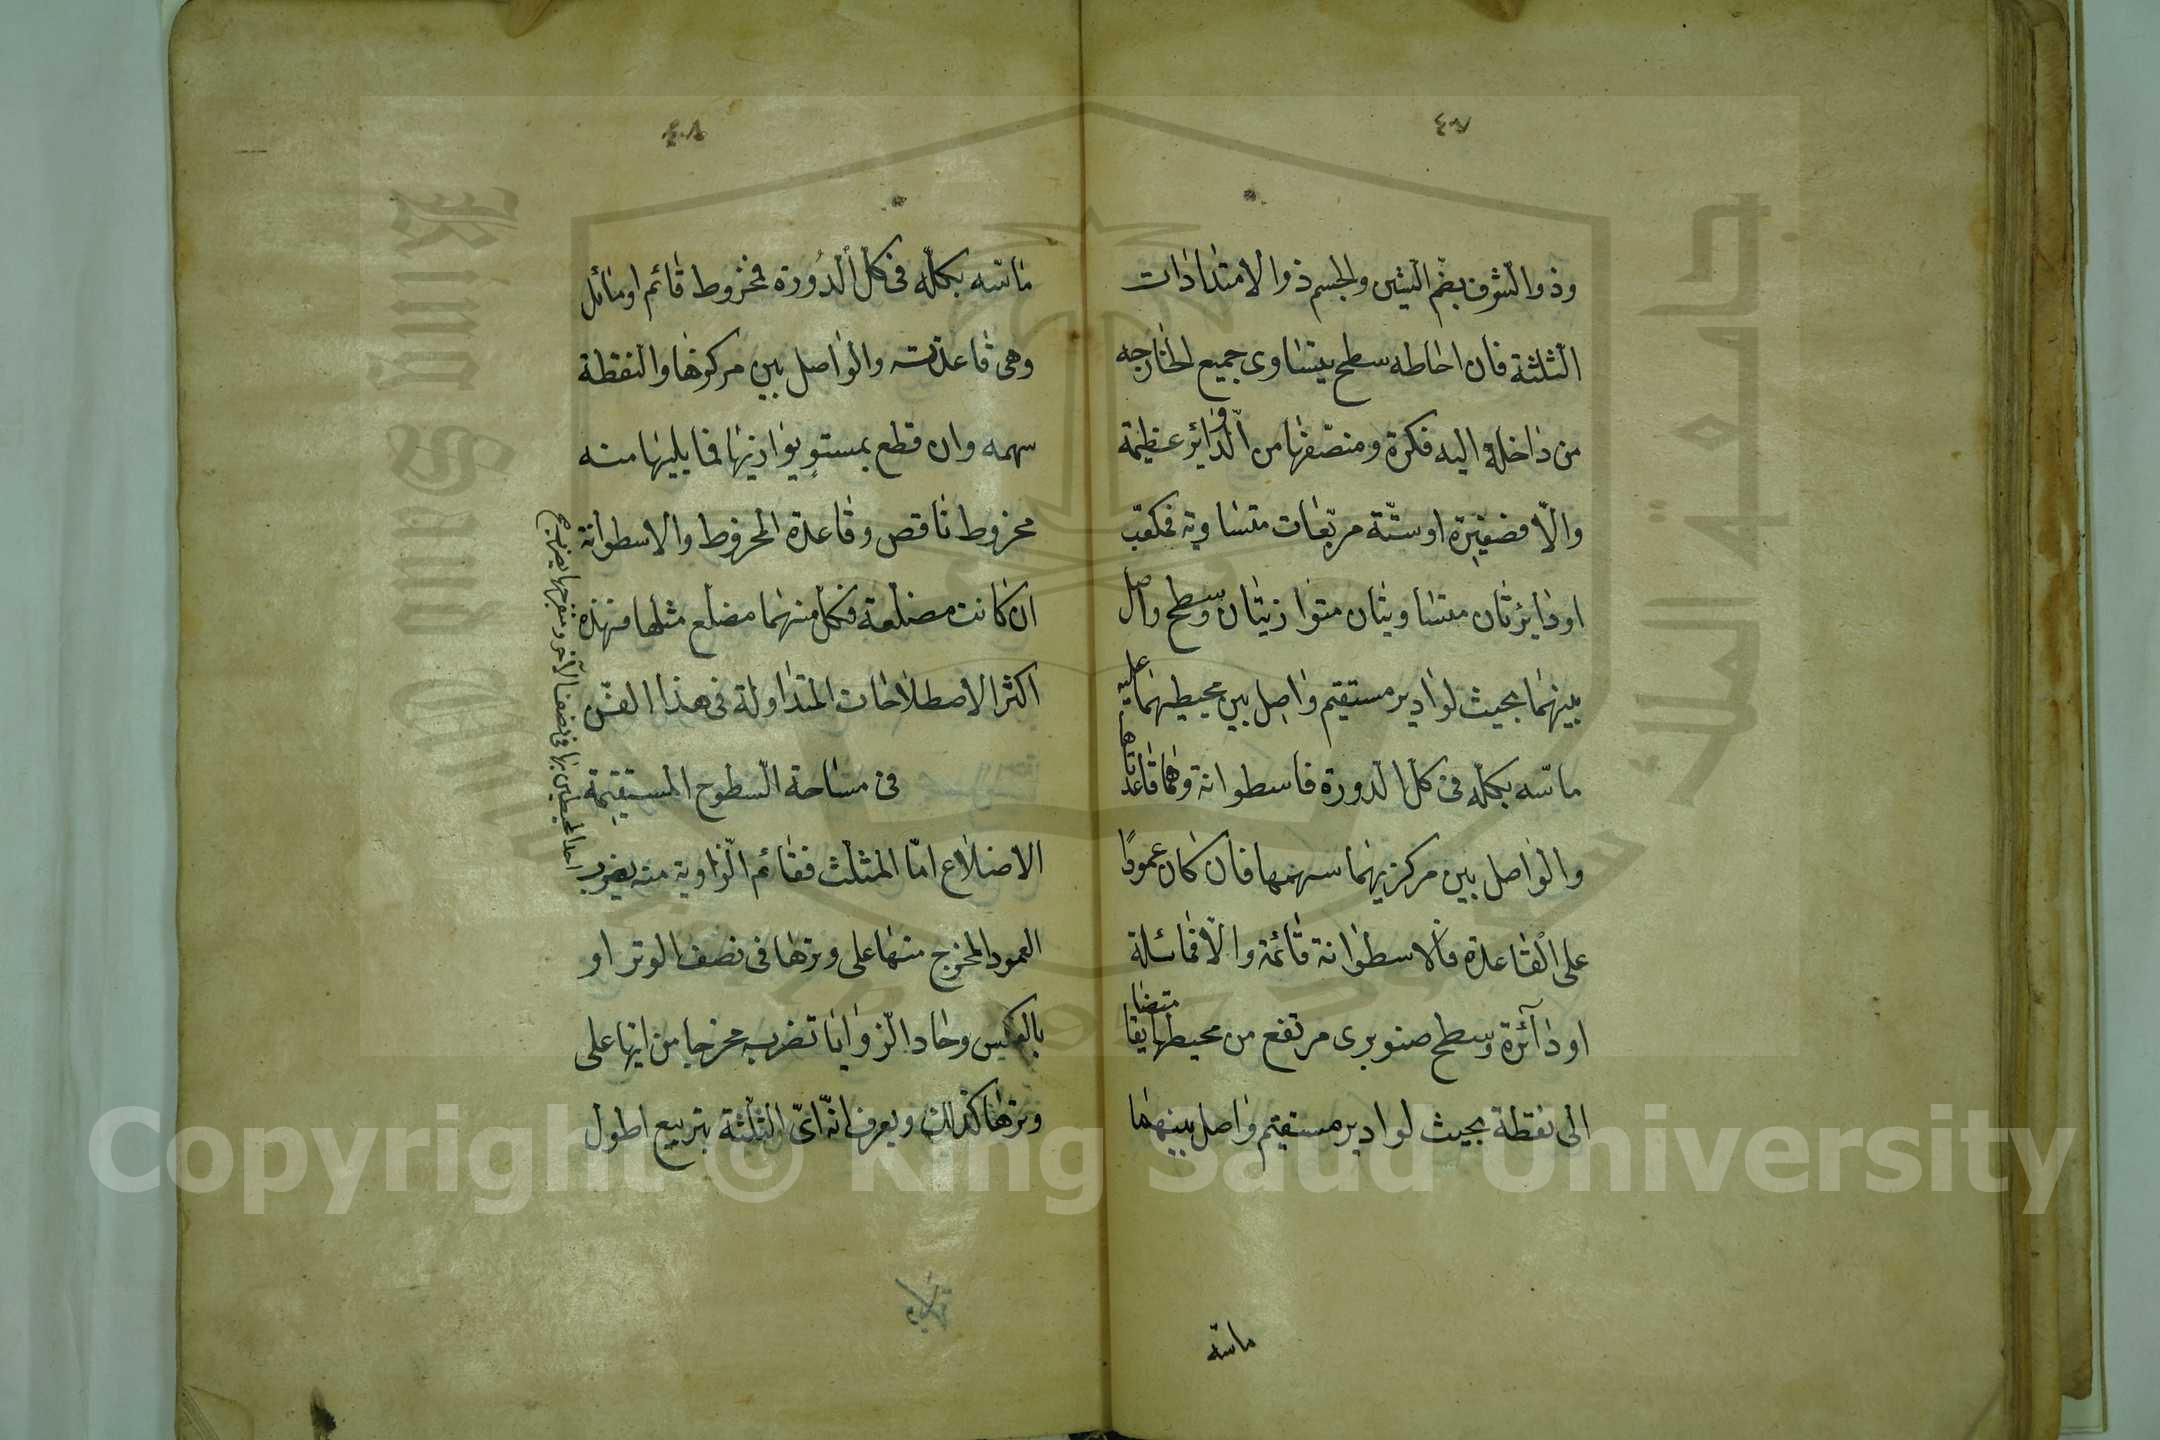 ٤٧
وذو الشرف بضم الشين والجسم ذو الامتدادات
الثلثة فان احاطه سطح يتساوى جميع الخارجه
من داخله اليه فكرة ومنصفها من الدوائر عظيمة
والا فصغيرة او ستة مربعات متساوية فمكعب
او دايرتان متساويتان متوازيتان وسطح واصل
بينهما بحيث لو ادير مستقيم واصل بين محيطيهما عليه
ماسه بكله فى كل الدورة فاسطوانة وهما قاعدتاها
والواصل بين مركزيهما سهمها فان كان عمودا
على القاعدة فالاسطوانة قائمة والا فمائلة
او دآئرة وسطح صنوبرى مرتفع من محيطها متضايقا
الى نقطة بحيث لو ادير مستقيم واصل بينهما
ماسه
٤٨
ماسه بكله فى كل الدورة فمخروط قائم او مائل
وهى قاعدته والواصل بين مركزها والنقطة
سهمه وان قطع بمستو يوازيها فما يليها منه
مخروط ناقص وقاعدة المخروط والاسطوانة
ان كانت مضلعة فكل منهما مضلع مثلها فهذه
اكثر الاصطلاحات المتداولة فى هذا الفن
فى مساحة السطوح المستقيمة
الاضلاع اما المثلث فقائم الزاوية منه يضرب
احد المحيطين بها فى نصف الآخر ومنفرجها يضرب
العمود المخرج منها على وترها فى نصف الوتر او
بالعكس وحاد الزوايا تضرب مخرجا من ايها على
وترها كذلك ويعرف انه اى الثلثة بتربيع اطول
King Saud University
جامعة الملك سعود
1957
Copyright © King Saud University